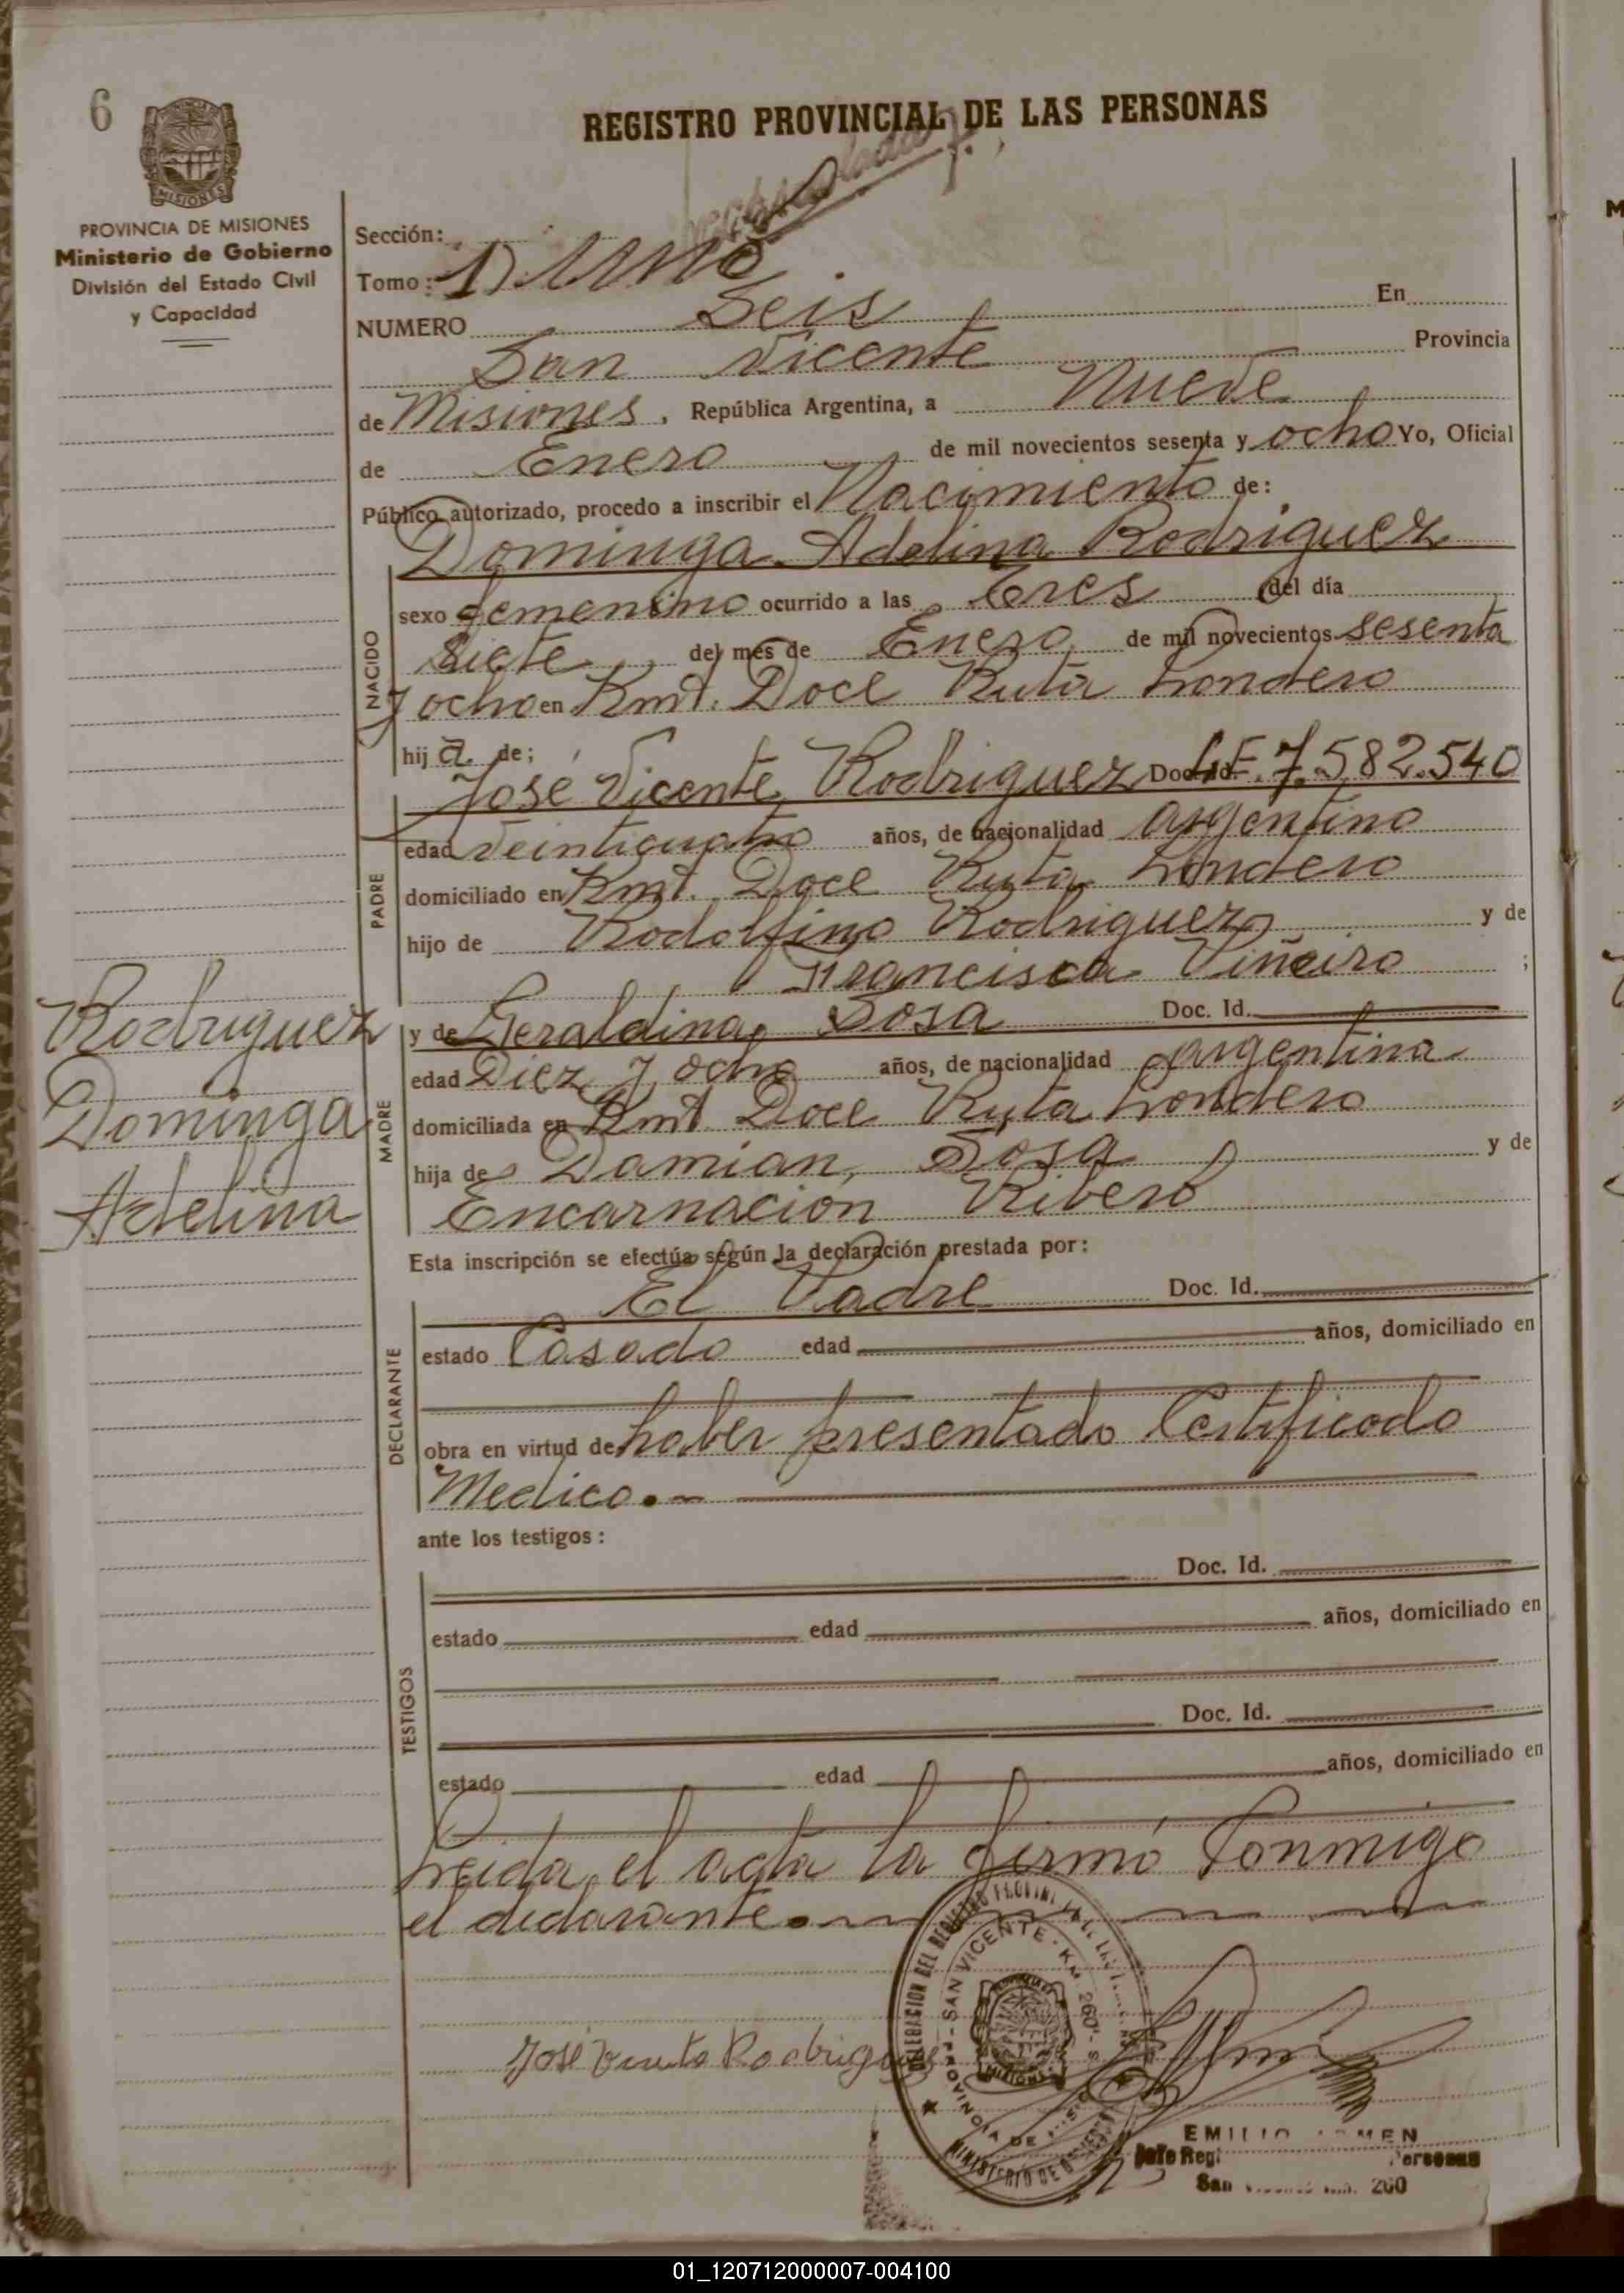 6
REGISTRO PROVINCIAL DE LAS PERSONAS
MISIONES
PROVINCIA DE MISIONES
Ministerio de Gobierno
División del Estado Civil
y Capacidad
Sección:
Tomo: 1) Uno
NUMERO Seis En
San Vicente Provincia
de Misiones, República Argentina, a Nueve
de Enero de mil novecientos sesenta y ocho Yo, Oficial
Público autorizado, procedo a inscribir el Nacimiento de:
Dominga Adelina Rodriguez
NACIDO
sexo femenino ocurrido a las Tres del día
Siete del mes de Enero de mil novecientos sesenta
y ocho en Kmt. Doce Ruta Londero
hija de:
José Vicente Rodriguez Doc. Id. L.E. 7.582.540
PADRE
edad veinticuatro años, de nacionalidad argentino
domiciliado en Kmt. Doce Ruta Londero
hijo de Rodolfino Rodriguez y de
Francisca Viñeiro ;
y de Geraldina Sosa Doc. Id.
MADRE
edad Diez y ocho años, de nacionalidad argentina
domiciliada en Kmt Doce Ruta Londero
hija de Damian Sosa y de
Encarnacion Ribero
Rodriguez
Dominga
Adelina
Esta inscripción se efectúa según la declaración prestada por:
El Padre Doc. Id.
DECLARANTE
estado Casado edad años, domiciliado en
obra en virtud de haber presentado Certificado
Medico.-
ante los testigos:
Doc. Id.
TESTIGOS
estado edad años, domiciliado en
Doc. Id.
estado edad años, domiciliado en
Leida el acta la firmó Conmigo
el declarante.
José Vicente Rodriguez
DELEGACION DEL REGISTRO PROVINCIAL DE LAS
SAN VICENTE - KM. 260 -
PROVINCIA DE
MISIONES
MINISTERIO DE
EMILIO
Jefe Reg. Personas
San 260
01_120712000007-004100